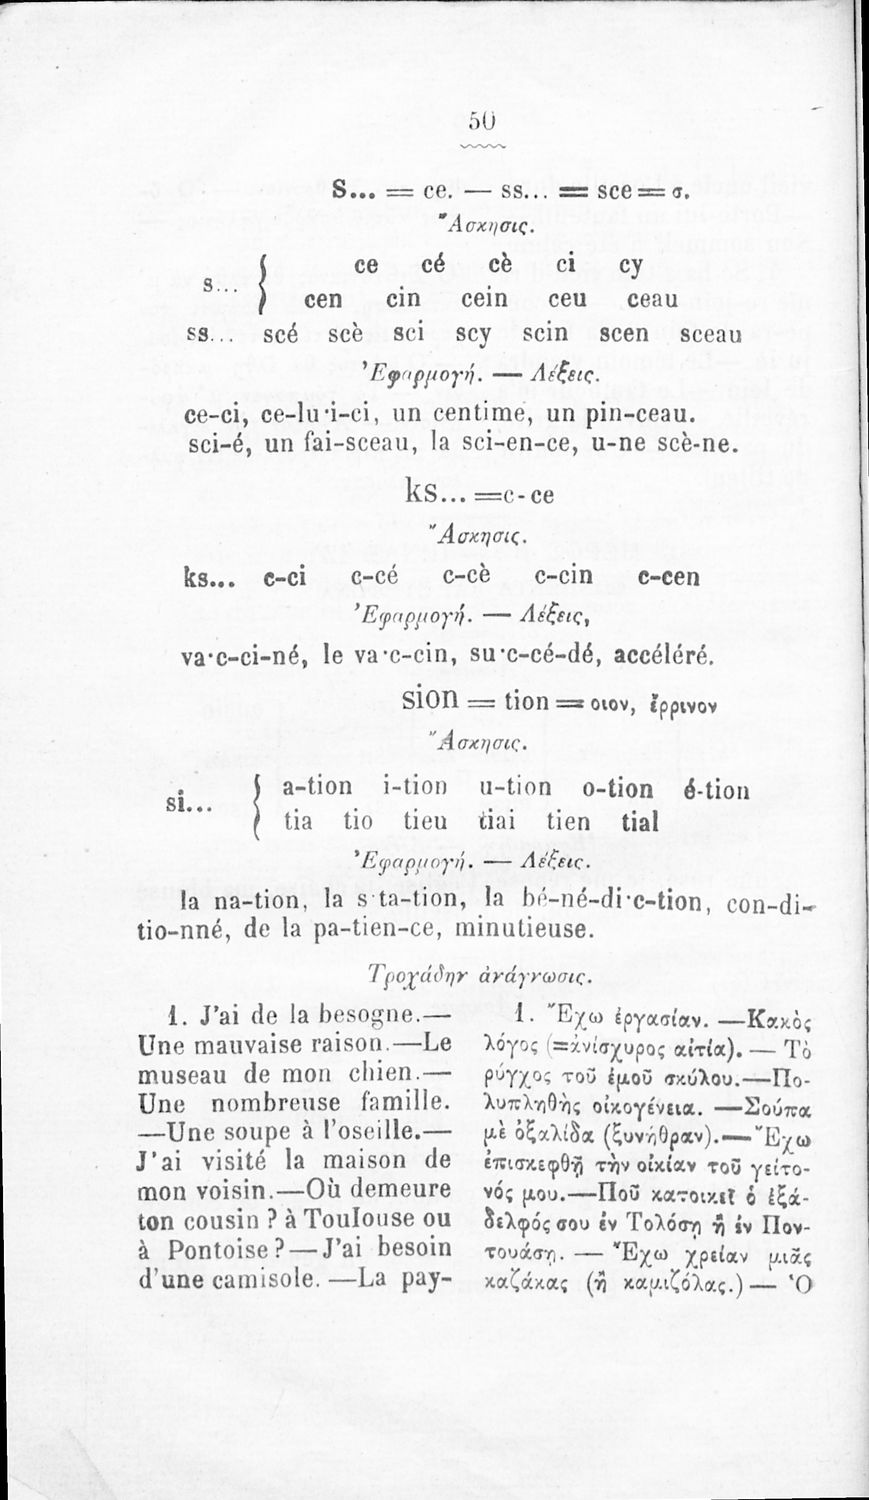 50
S... = ce. — ss... = sce = σ.
Ἄσκησις.
s... { ce cé cè ci cy
cen cin cein ceu ceau
ss... scé scè sci scy scin scen sceau
Ἐφαρμογή. — Λέξεις.
ce-ci, ce-lu·i-ci, un centime, un pin-ceau.
sci-é, un fai-sceau, la sci-en-ce, u-ne scè-ne.
ks... =c-ce
Ἄσκησις.
ks... c-ci c-cé c-cè c-cin c-cen
Ἐφαρμογή. — Λέξεις,
va·c-ci-né, le va·c-cin, su·c-cé-dé, accéléré.
sion = tion = σιον, ἔρρινον
Ἄσκησις.
si... { a-tion i-tion u-tion o-tion é-tion
tia tio tieu tiai tien tial
Ἐφαρμογή. — Λέξεις.
la na-tion, la s·ta-tion, la bé-né-di·c-tion, con-di-
tio-nné, de la pa-tien-ce, minutieuse.
Τροχάδην ἀνάγνωσις.
1. J'ai de la besogne.—
Une mauvaise raison.—Le
museau de mon chien.—
Une nombreuse famille.
—Une soupe à l'oseille.—
J'ai visité la maison de
mon voisin.—Où demeure
ton cousin ? à Toulouse ou
à Pontoise?—J'ai besoin
d'une camisole. —La pay-
1. Ἔχω ἐργασίαν. —Κακὸς
λόγος (=ἀνίσχυρος αἰτία). — Τὸ
ρύγχος τοῦ ἐμοῦ σκύλου.—Πο-
λυπληθὴς οἰκογένεια. —Σούπα
μὲ ὀξαλίδα (ξυνήθραν).—Ἔχω
ἐπισκεφθῆ τὴν οἰκίαν τοῦ γείτο-
νός μου.—Ποῦ κατοικεῖ ὁ ἐξά-
δελφός σου ἐν Τολόσῃ ἢ ἐν Πον-
τουάσῃ. — Ἔχω χρείαν μιᾶς
καζάκας (ἢ καμιζόλας.) — Ὁ